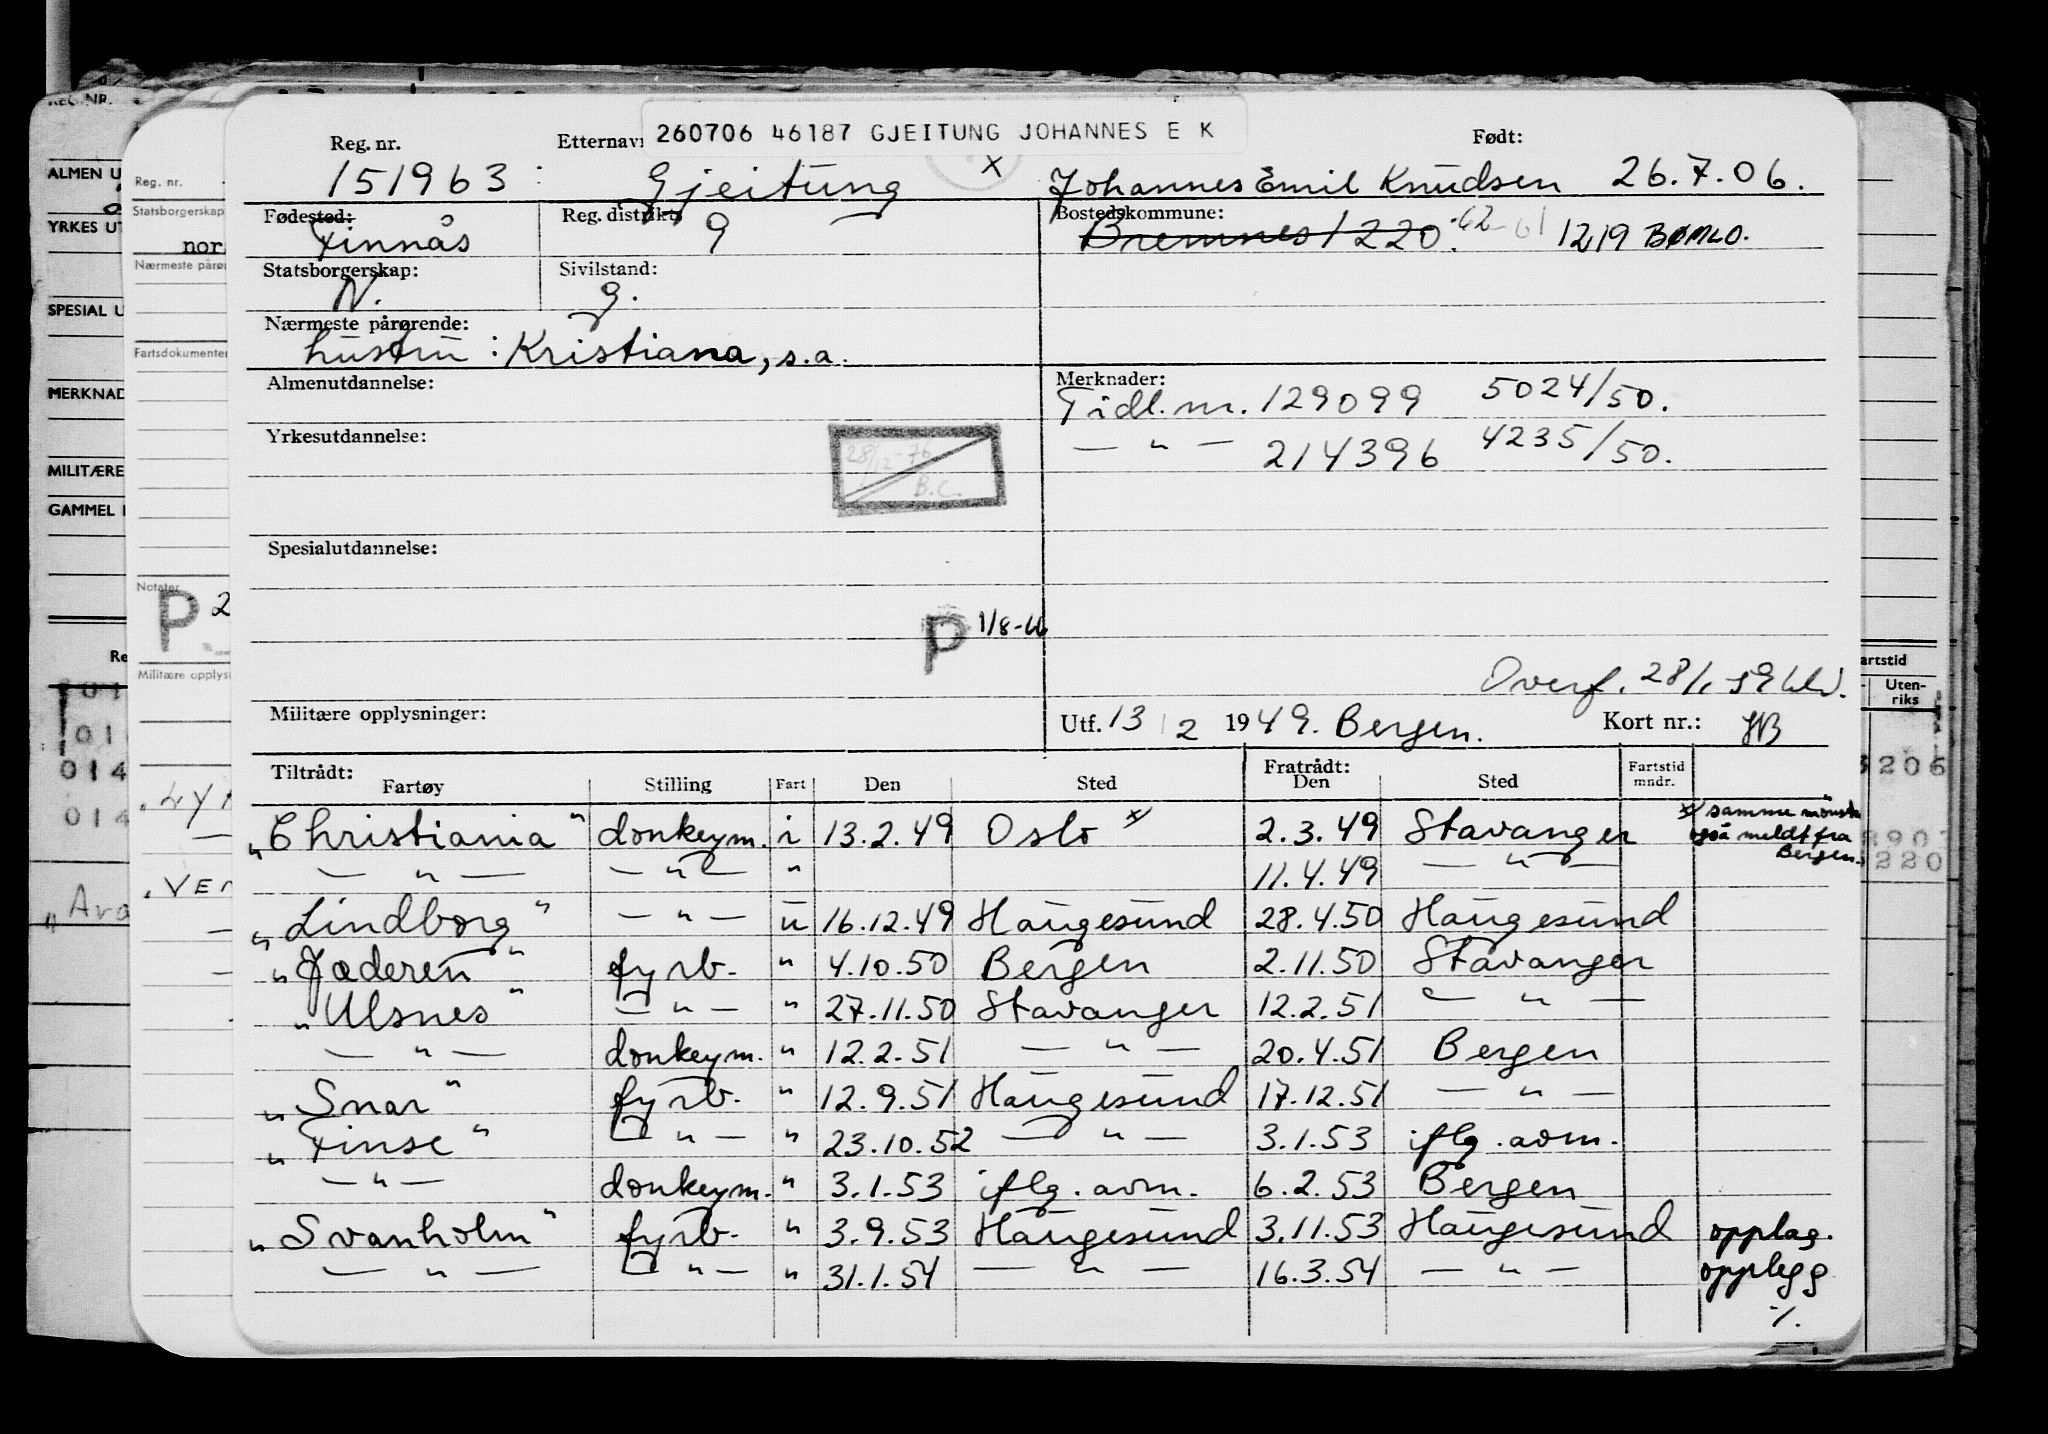 260706 46187 GJEITUNG JOHANNES E K
Reg. nr. Etternavn Født:
151963 Gjeitung x Johannes Emil Knudsen 26.7.06.
Fødested: Reg. distrikt: Bostedskommune:
Finnås 9 Bremnes 1220. 1219 BØMLO.
Statsborgerskap: Sivilstand:
N. g.
Nærmeste pårørende:
hustru: Kristiana, s.a.
Almenutdannelse: Merknader:
Tidl. nr. 129099 5024/50.
Yrkesutdannelse: — " — 214396 4235/50.
28/12-76
B.C.
Spesialutdannelse:
P 1/8-66
Overf. 28/1 59
Militære opplysninger: Utf. 13/2 1949. Bergen. Kort nr.: HB
Tiltrådt: Fratrådt: Fartstid
Fartøy Stilling Fart Den Sted Den Sted mndr.
"Christiania" donkeym. i 13.2.49 Oslo x/ 2.3.49 Stavanger x/ samme mønstr.
også meldt fra
Bergen.
— " — — " — " 11.4.49 — " —
"Lindborg" — " — u 16.12.49 Haugesund 28.4.50 Haugesund
"Jæderen" fyrb. " 4.10.50 Bergen 2.11.50 Stavanger
"Ulsnes" — " — " 27.11.50 Stavanger 12.2.51 — " —
— " — donkeym. " 12.2.51 — " — 20.4.51 Bergen
"Snar" fyrb. " 12.9.51 Haugesund 17.12.51 — " —
"Finse" — " — " 23.10.52 — " — 3.1.53 iflg. avm.
— " — donkeym. " 3.1.53 iflg. avm. 6.2.53 Bergen
"Svanholm" fyrb. " 3.9.53 Haugesund 3.11.53 Haugesund opplag.
— " — — " — " 31.1.54 — " — 16.3.54 — " — opplegg
·/.
REG. NR.
ALMEN U
YRKES UT
SPESIAL U
MERKNAD
MILITÆRE
GAMMEL
Re
014
014
Reg. nr.
Statsborgerskap
nor
Nærmeste pårør
Fartsdokumenter
Notater
P 2
Militære opplysn
artstid
Uten-
riks
3206
220